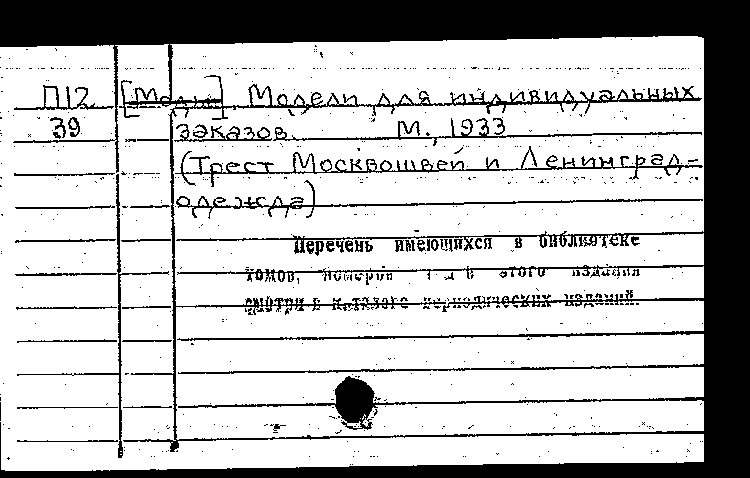 П12 [Моды]. Модели для индивидуальных
39 заказов. М., 1933
(Трест Москвошвей и Ленинград-
одежда)
Перечень имеющихся в библиотеке
томов, номеров и т д в этого издания
смотри в каталоге периодических изданий.